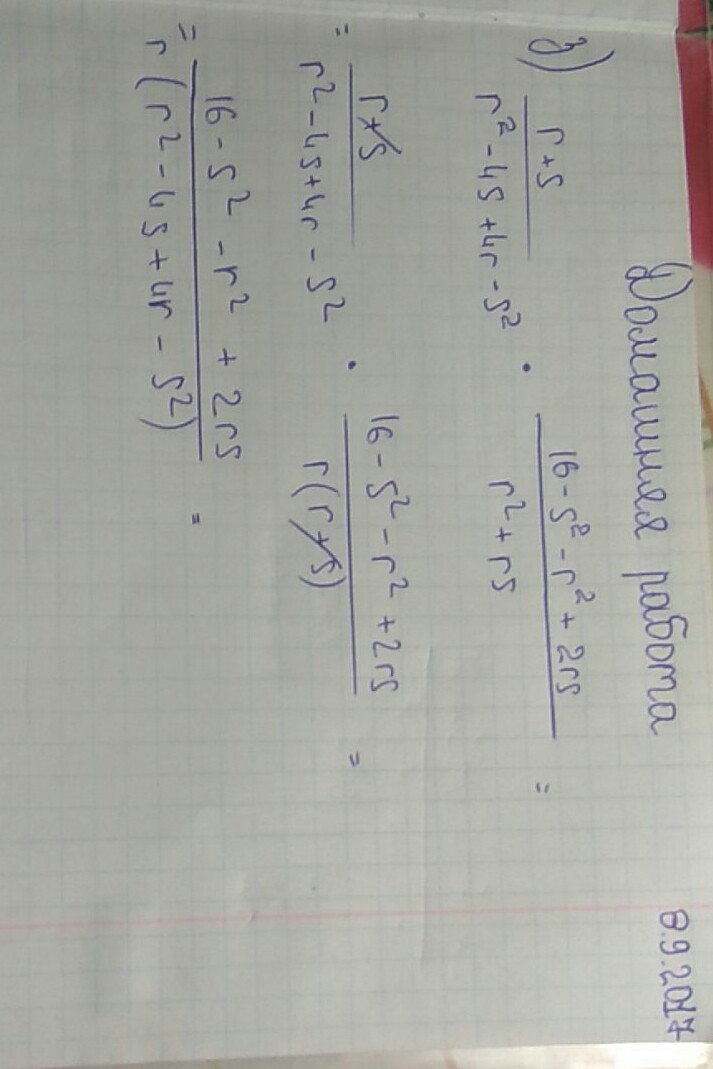 8.9.2017
Домашняя работа
з) \frac{r+s}{r^2-4s+4r-s^2} \cdot \frac{16-s^2-r^2+2rs}{r^2+rs} =
= \frac{r+s}{r^2-4s+4r-s^2} \cdot \frac{16-s^2-r^2+2rs}{r(r+s)} =
= \frac{16-s^2-r^2+2rs}{r(r^2-4s+4r-s^2)} =